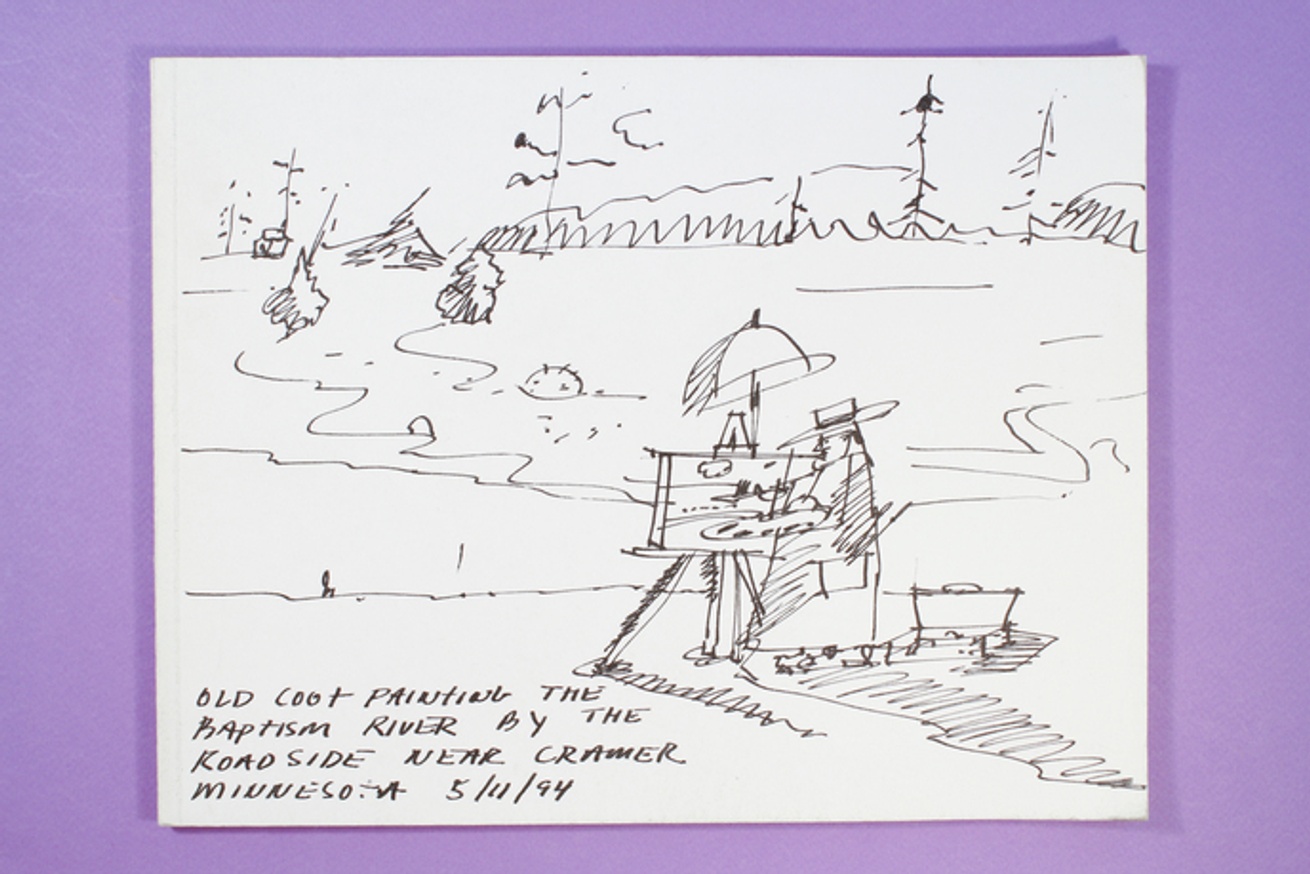 OLD COOT PAINTING THE
BAPTISM RIVER BY THE
ROADSIDE NEAR CRAMER
MINNESOTA 5/11/94